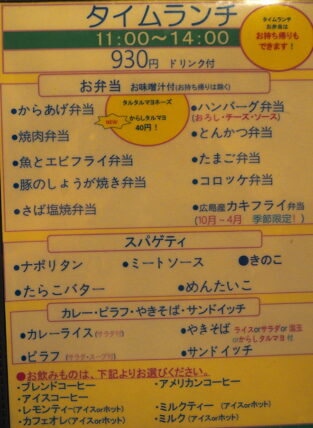 タイムランチ
タイムランチ
お弁当は
お持ち帰りも
できます!
11:00〜14:00
930円 ドリンク付
お弁当 お味噌汁付(お持ち帰りは除く)
タルタルマヨネーズ
NEW
からしタルマヨ
40円!
●からあげ弁当
●焼肉弁当
●魚とエビフライ弁当
●豚のしょうが焼き弁当
●さば塩焼弁当
●ハンバーグ弁当
(おろし・チーズ・ソース)
●とんかつ弁当
●たまご弁当
●コロッケ弁当
●広島産カキフライ弁当
(10月〜4月 季節限定!)
スパゲティ
●ナポリタン ●ミートソース ●きのこ
●たらこバター ●めんたいこ
カレー・ピラフ・やきそば・サンドイッチ
●カレーライス(サラダ付)
●やきそば ライスorサラダor温玉
orからしタルマヨ 付
●ピラフ(サラダ・スープ付)
●サンドイッチ
●お飲みものは、下記よりお選びください。
・ブレンドコーヒー ・アメリカンコーヒー
・アイスコーヒー
・レモンティー(アイスorホット) ・ミルクティー (アイスorホット)
・カフェオレ(アイスorホット) ・ミルク(アイスorホット)